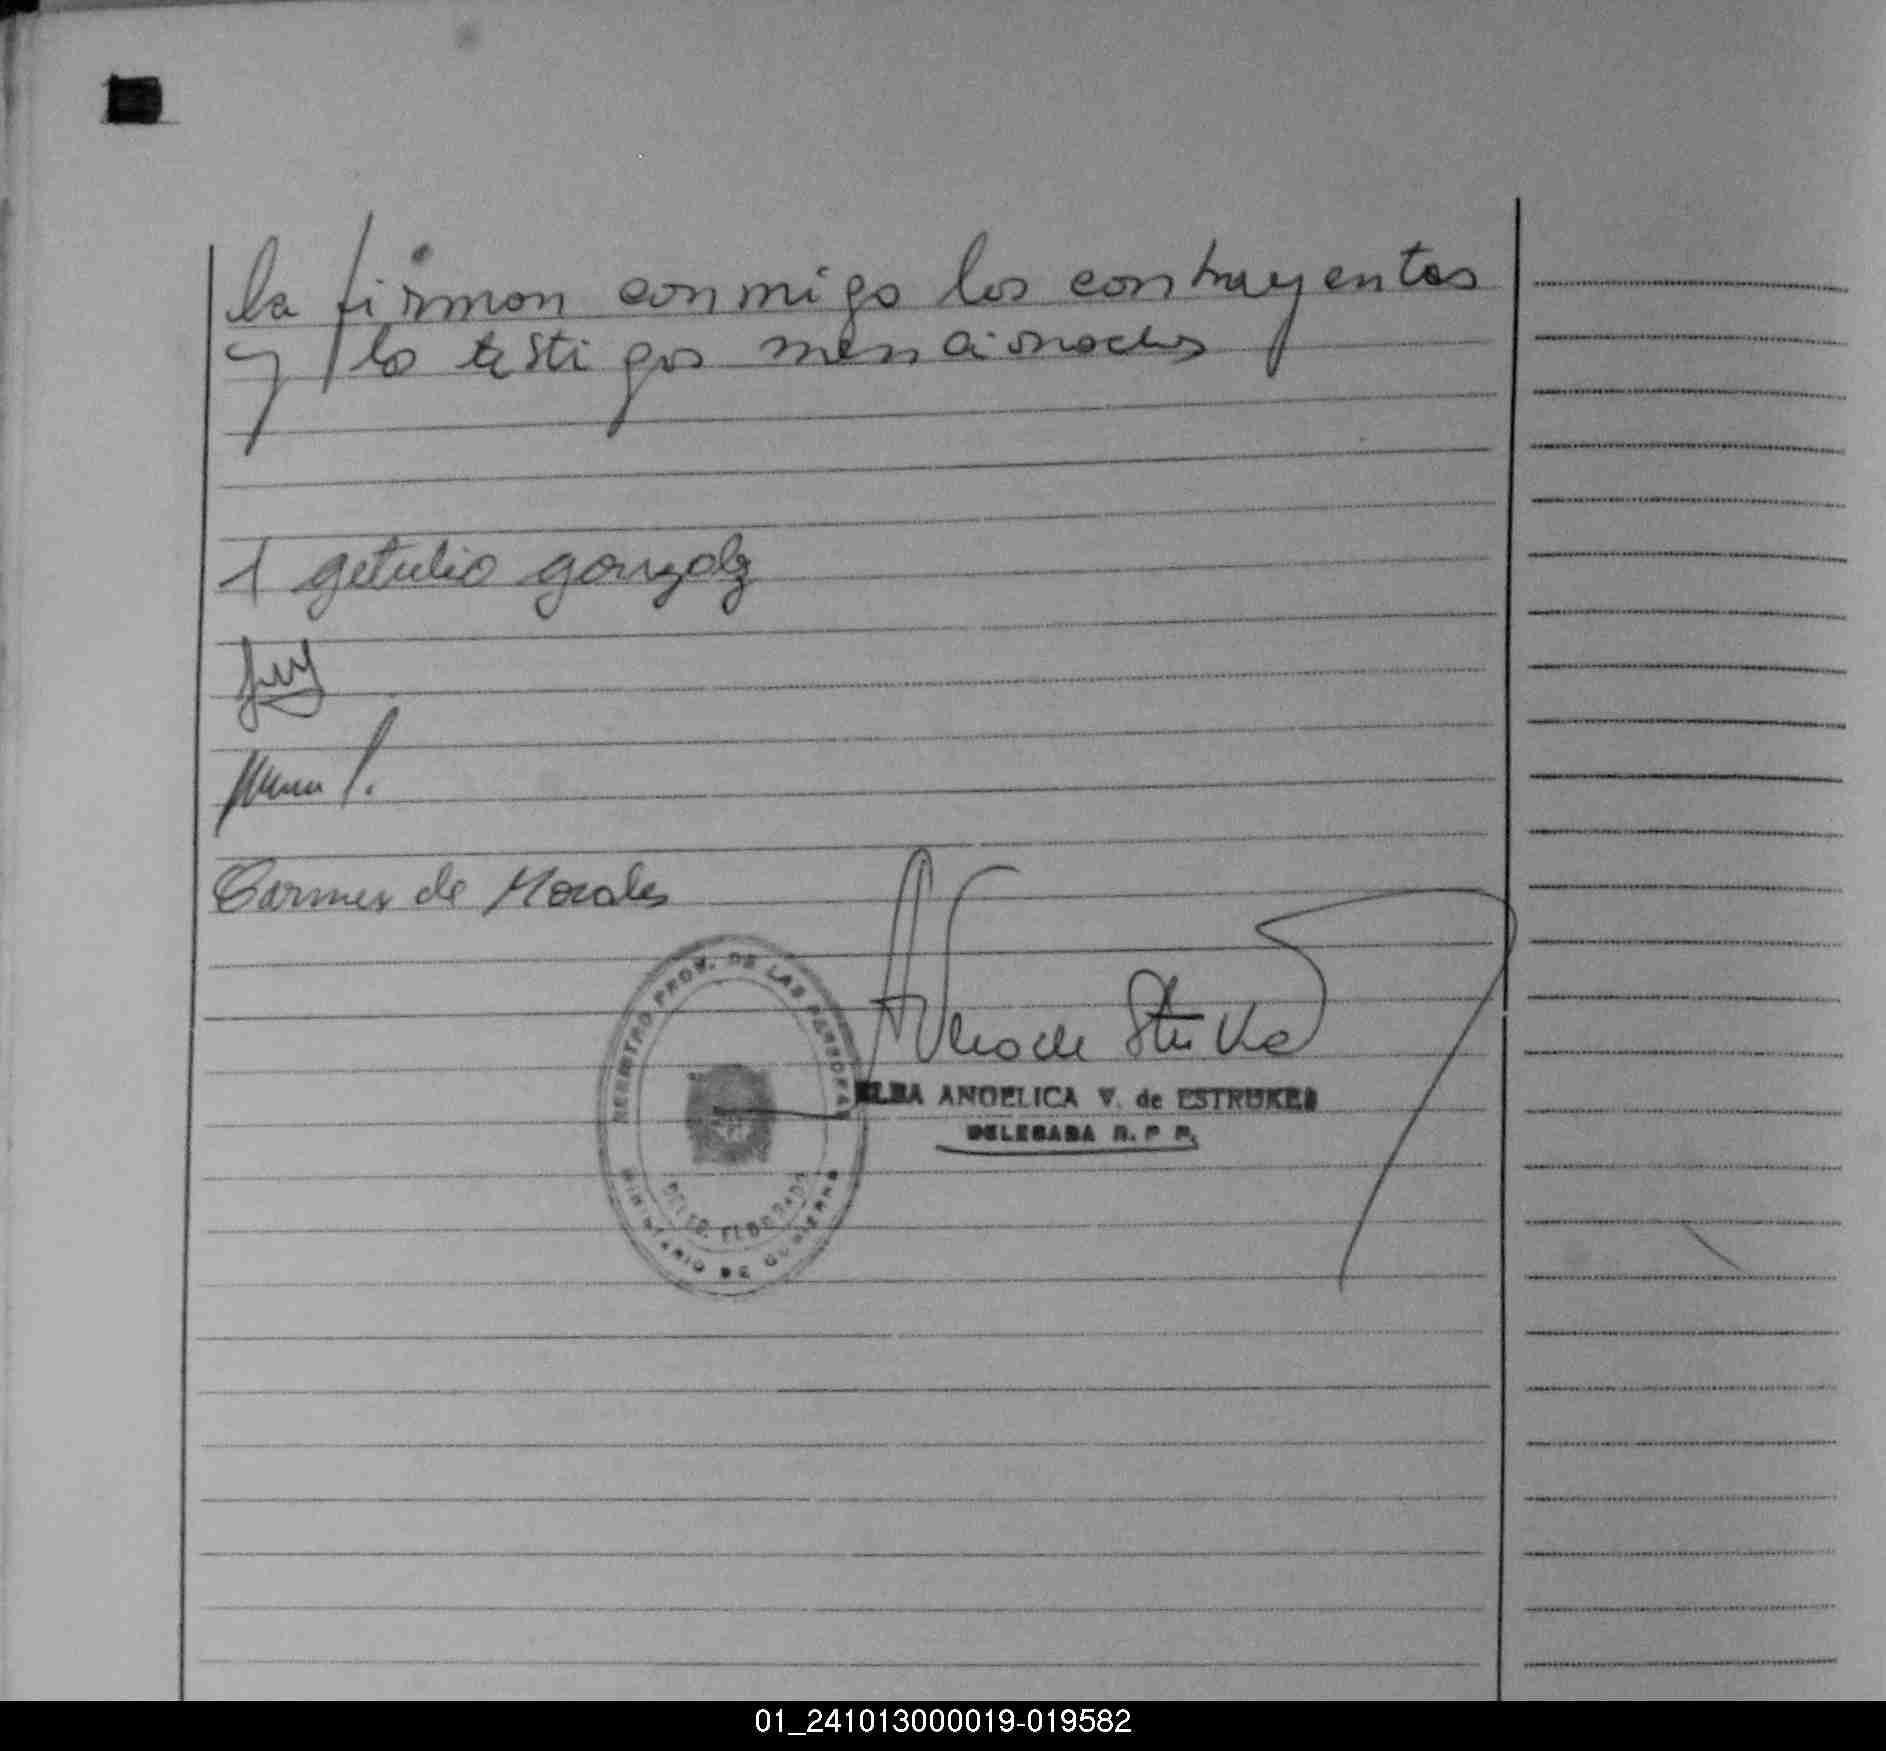 la firman conmigo los contrayentes
y los testigos mencionados
1 getulio gonzalez
Carmen de Morales
REGISTRO PROV. DE LAS PERSONAS
DELEG. ELDORADO
MINISTERIO DE GOBIERNO
ELBA ANGELICA V. de ESTRUKEL
DELEGADA R. P. P.
01_241013000019-019582